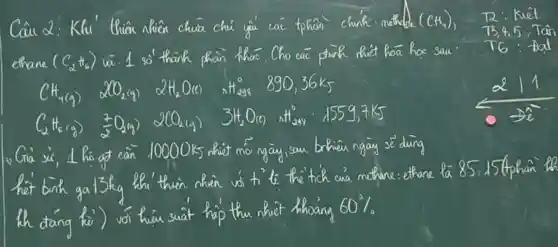 Câu 2: Khí thiên nhiên chứa chủ yếu các tphần chính: methane (CH4),
ethane (C2H6) và 1 số thành phần khác. Cho các ptrình nhiệt hóa học sau:
CH4(g) 2O2(g) 2H2O(l) ΔH°298 890,36KJ
C2H6(g) 7/2O2(g) 2CO2(g) 3H2O(l) ΔH°298 1559,7KJ
Giả sử, 1 hộ gđ cần 10000KJ nhiệt mỗi ngày, sau bnhiêu ngày sẽ dùng
hết bình ga 13kg khí thiên nhiên với tỉ lệ thể tích của methane: ethane là 85:15 (tphần
kh đáng kể) với hiệu suất hấp thu nhiệt khoảng 60%.
T2: Kiệt
T3,4,5: Tân
T6: Đạt
2 | 1